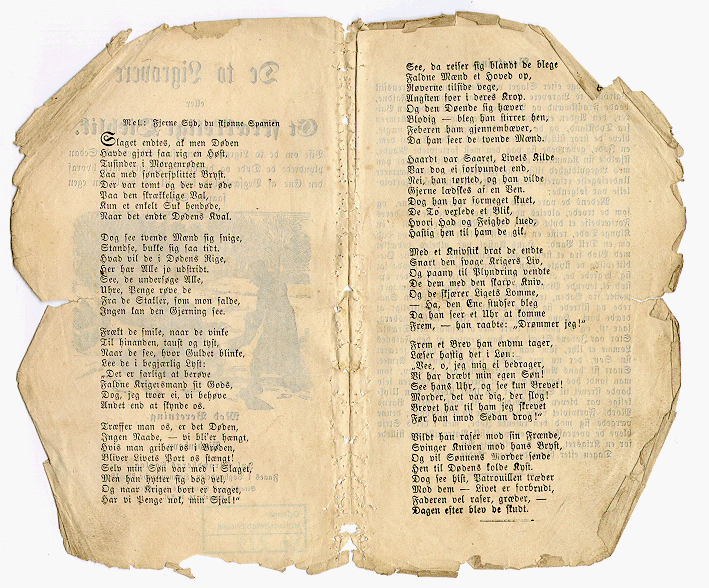 Mel.: Fjerne Syd, du skjønne Spanien
Slaget endtes, af men Døden
Havde gjort saa rig en Høst,
Tusinder i Morgenrøden
Laa med søndersplittet Bryst.
Der var tomt og der var øde
Paa den skrækkelige Val,
Kun et enkelt Suk hendøde,
Naar det endte Dødens Kval.
Dog see tvende Mænd sig snige,
Standse, bukke sig saa tidt.
Hvad vil de i Dødens Rige,
Her har Alle jo udstridt.
See, de undersøge Alle,
Uhre, Penge røve de
Fra de Stakler, som mon falde,
Ingen kan den Gjerning see.
Frækt de smile, naar de vinke
Til hinanden, taust og tyst,
Naar de see, hvor Guldet blinke,
Lee de i begjærlig Lyst:
„Det er farligt at berøve
Faldne Krigersmand sit Gods,
Dog, jeg troer ei, vi behøve
Andet end at skynde os.
Træffer man os, er det Døden,
Ingen Naade, — vi bli'er hængt,
Hvis man griber os i Brøden,
Bliver Livets Port os stængt!
Selv min Søn var med i Slaget,
Men han hytter sig dog vel,
Og naar Krigen bort er draget,
Har vi Penge nok, min Sjæl!“
See, da reiser sig blandt de blege
Faldne Mænd et Hoved op,
Røverne tilside vege,
Angsten foer i deres Krop.
Og den Døende sig hæver
Blodig — bleg han stirrer hen,
Feberen ham gjennembæver,
Da han seer de tvende Mænd.
Haardt var Saaret, Livets Kilde
Var dog ei forsvundet end,
Nei, han tørsted, og han vilde
Gjerne lædskes af en Ven.
Dog han har formeget skuet,
De To vexlede et Blik,
Hvori Had og Feighed lued,
Hastig hen til ham de gik.
Med et Knivstik brat de endte
Snart den svage Krigers Liv,
Og paany til Plyndring vendte
De dem med den skarpe Kniv.
Og de skjærer Ligets Lomme,
— Ha, den Ene studser bleg
Da han seer et Uhr at komme
Frem, — han raabte: „Drømmer jeg!“
Frem et Brev han endnu tager,
Læser hastig det i Løn:
„Vee, o, jeg mig ei bedrager,
Vi har dræbt min egen Søn!
See hans Uhr, og see kun Brevet!
Morder, det var dig, der slog!
Brevet har til ham jeg skrevet
Før han imod Sedan drog!“
Vildt han raser mod sin Frænde,
Svinger Kniven mod hans Bryst,
Og vil Sønnens Morder sende
Hen til Dødens kolde Kyst.
Dog see hist, Patrouillen træder
Mod dem — Livet er forbrudt,
Faderen vel raser, græder, —
Dagen efter blev de skudt.